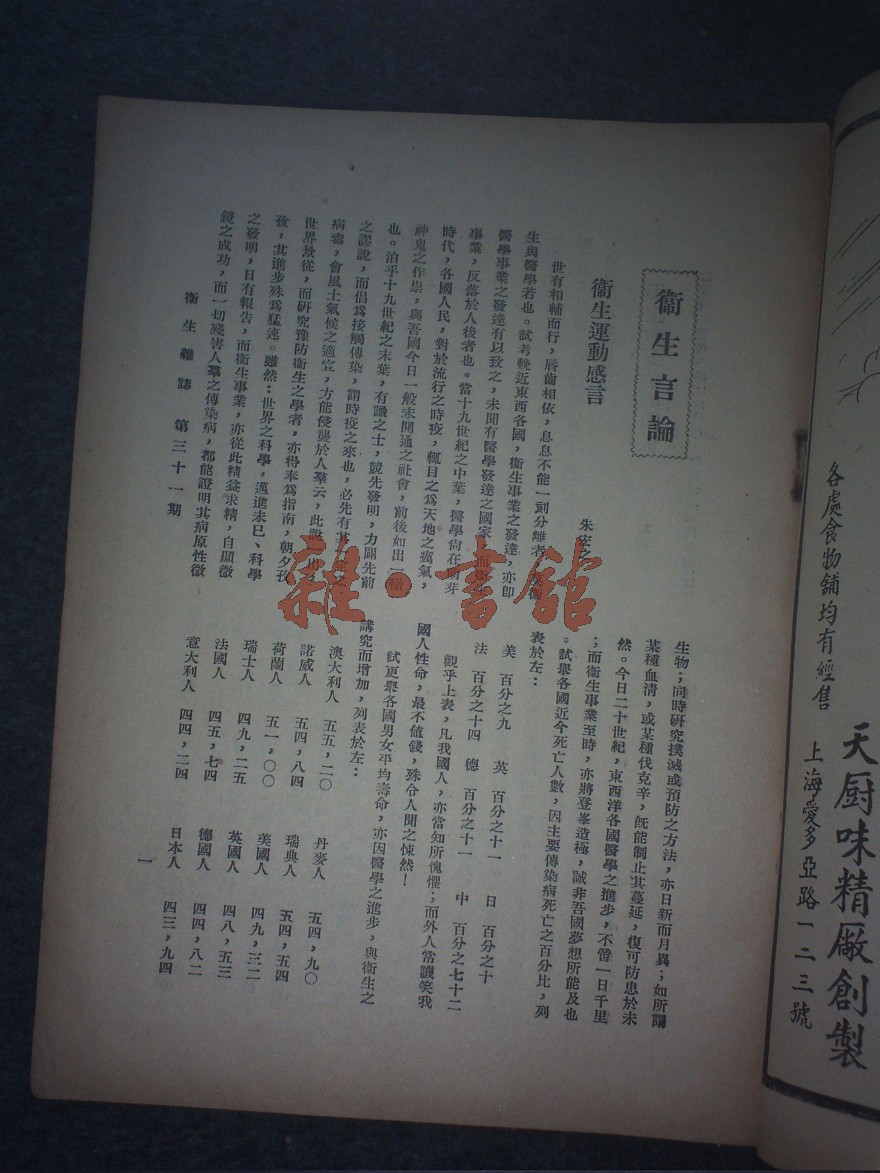 衞生言論
衞生運動感言
朱
世有相輔而行，唇齒相依，息息不能一刻分離者，
生與醫學若也。試考輓近東西各國，衞生事業之發達，亦卽
醫學事業之發達有以致之，未聞有醫學發達之國家，而衞生
事業，反落於人後者也。當十九世紀之中葉，醫學尙在萌芽
時代，各國人民，對於流行之時疫，輒目之爲天地之癘氣，
神鬼之作祟，與吾國今日一般未開通之社會，前後如出一轍
也。洎乎十九世紀之末葉，有識之士，競先發明，力闢先前
之謬說，而倡爲接觸傳染，謂時疫之來也，必先有其
病毒，會風土氣候之適宜，方能侵襲於人羣云，此說一出，
世界景從，而硏究豫防衞生之學者，亦得奉爲指南，朝夕孜
孜，其進步殊爲猛速。雖然：世界之科學，邁進未已、科學
之發明，日有報告，而衞生事業，亦從此精益求精，自顯微
鏡之成功，而一切殘害人羣之傳染病，都能證明其病原性微
生物；同時硏究撲滅或預防之方法，亦日新而月異；如所謂
某種血淸，或某種伐克辛，旣能制止其蔓延，復可防患於未
然。今日二十世紀，東西洋各國醫學之進步，不啻一日千里
；而衞生事業至時，亦將登峯造極，誠非吾國夢想所能及也
。試舉各國近今死亡人數，因主要傳染病死亡之百分比，列
表於左：
美　百分之九　英　百分之十一　日　百分之十
法　百分之十四　德　百分之十一　中　百分之七十二
觀乎上表，凡我國人，亦當知所愧懼；而外人常譏笑我
國人性命，最不値錢，殊令人聞之悚然！
試更舉各國男女平均壽命，亦因醫學之進步，與衞生之
講究而增加，列表於左：
澳大利人　五五，二〇　丹麥人　五四，九〇
諾威人　五四，八四　瑞典人　五四，五四
荷蘭人　五一，〇〇　美國人　四九，三二
瑞士人　四九，二五　英國人　四八，五三
法國人　四五，七四　德國人　四四，八二
意大利人　四四，二四　日本人　四三，九四
衞生雜誌　第三十一期
一
各處食物舖均有經售
上海愛多亞路一二三號
天厨味精廠創製
雜·書館